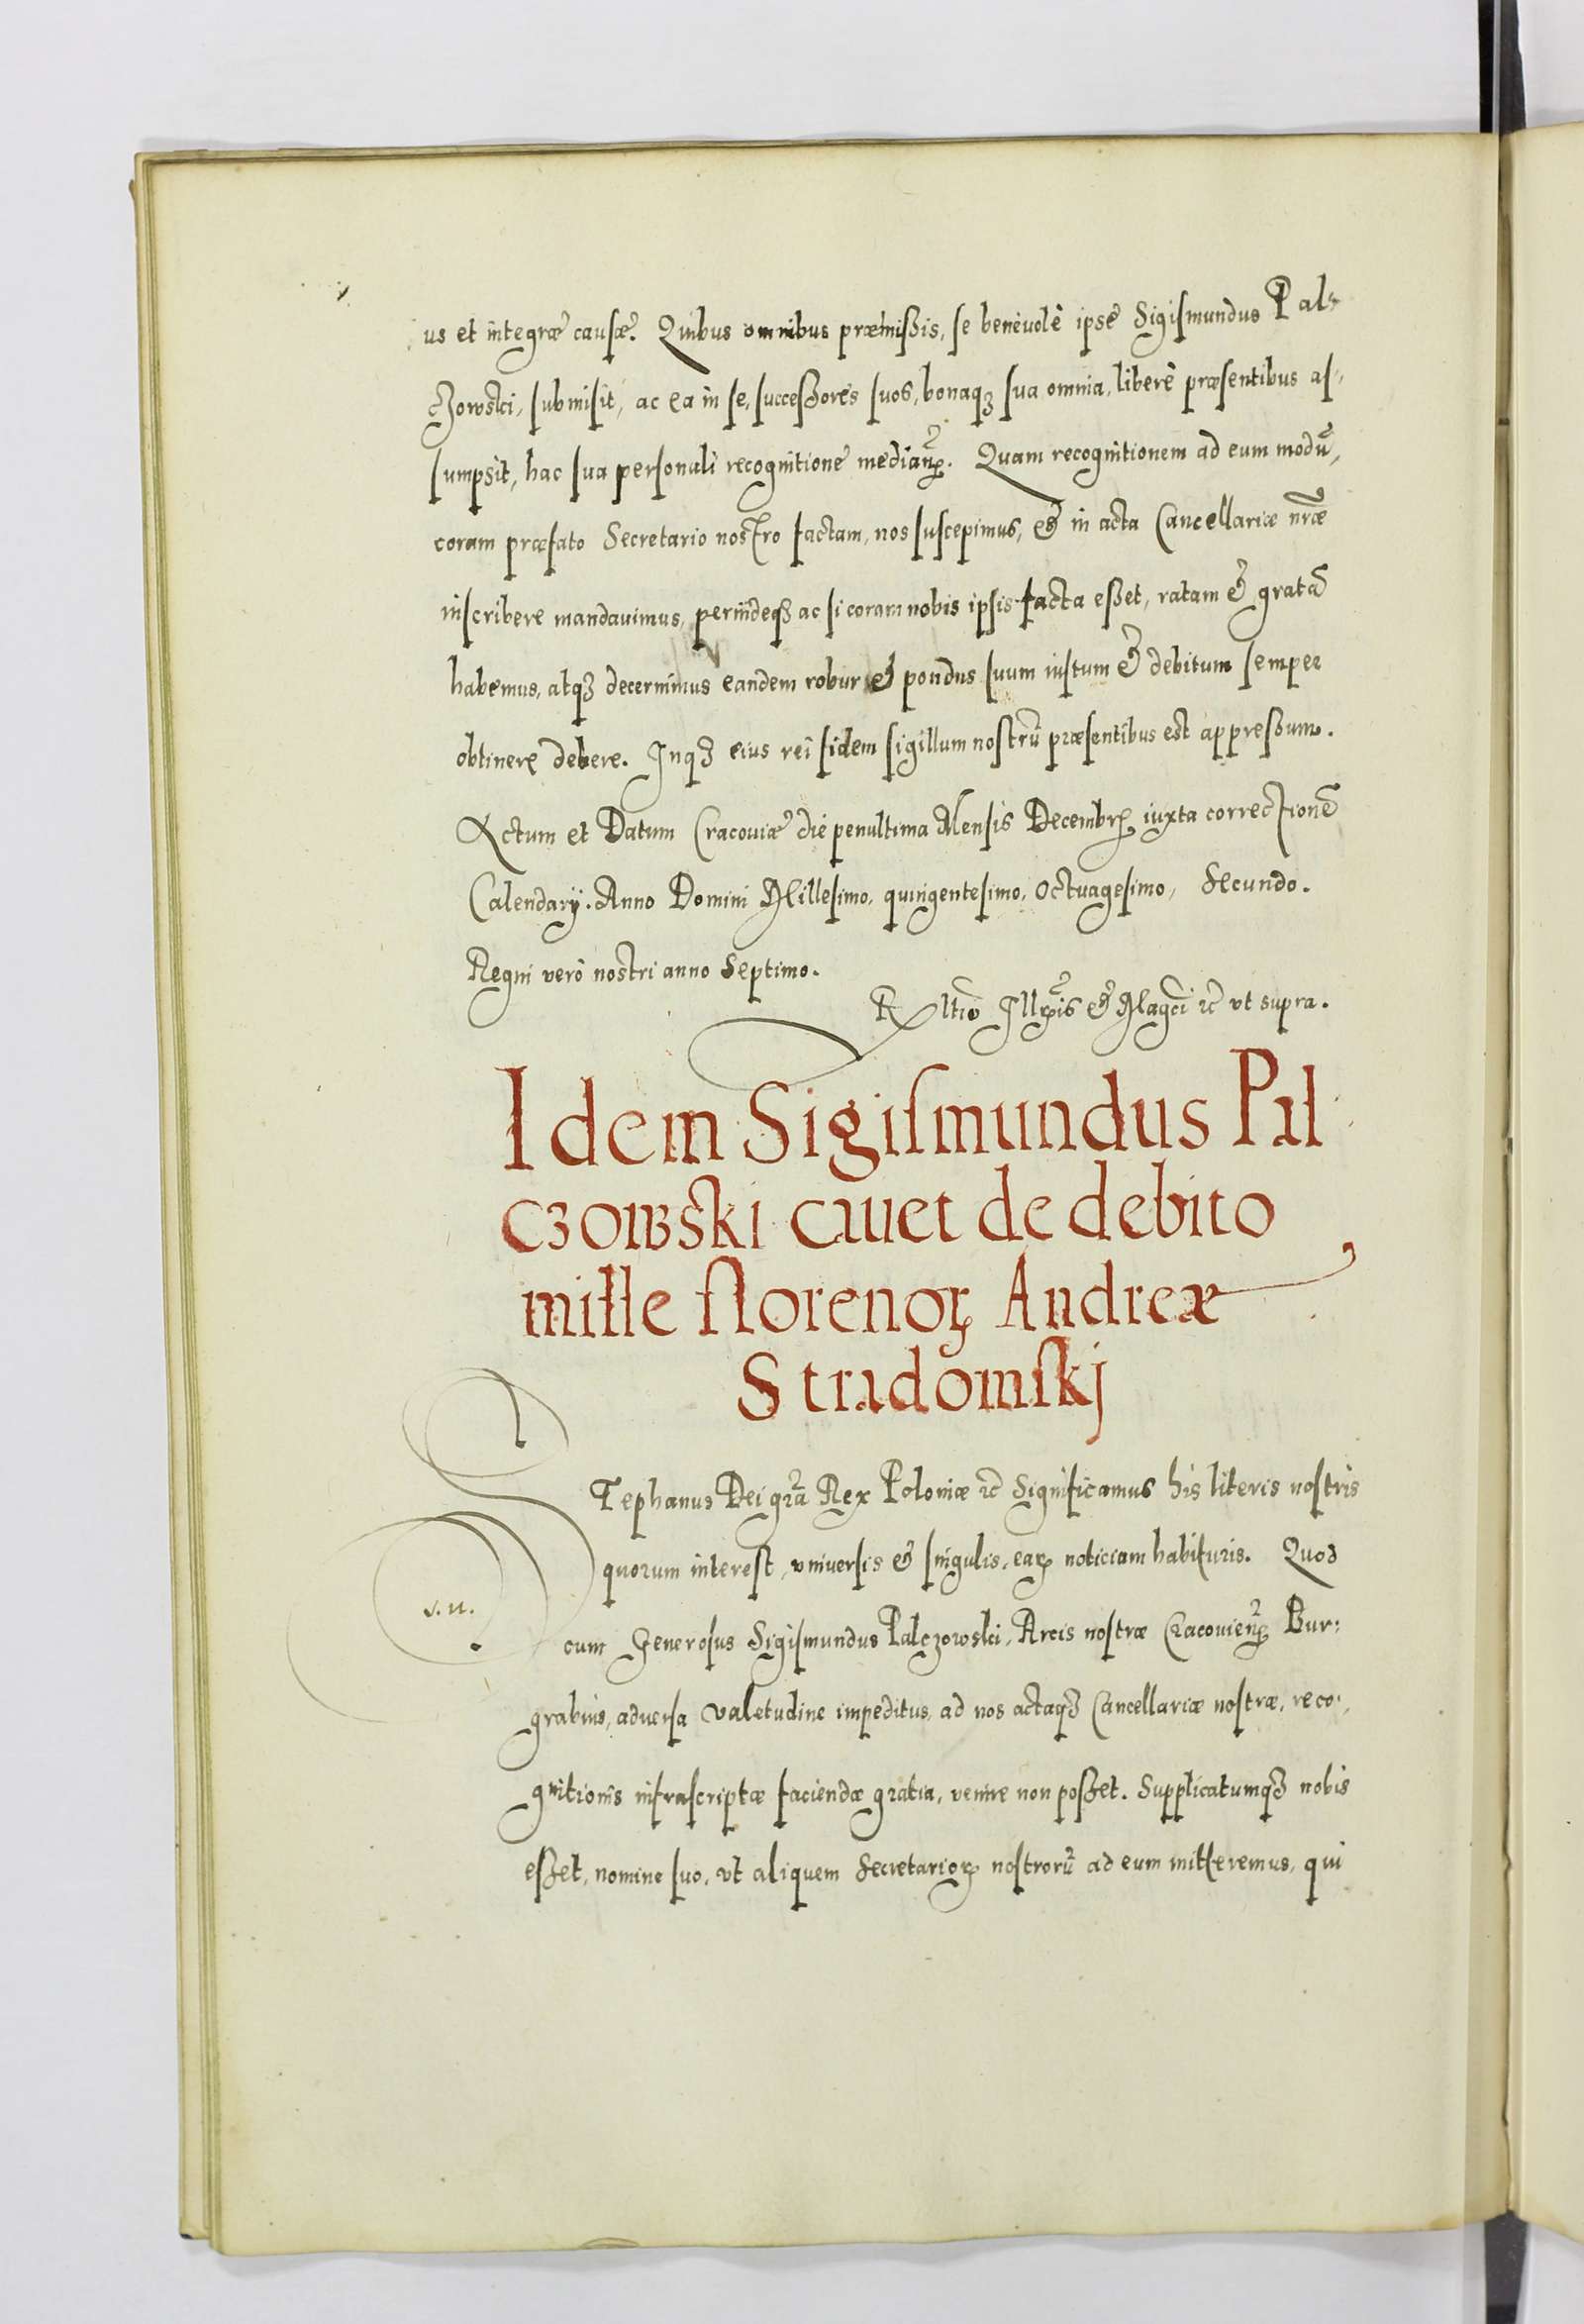 us et integræ causæ. Quibus omnibus præmißis, se beneuolè ipse Sigismundus Pal-
czowski, submisit, ac ea in se, succeßores suos, bonaqȝ sua omnia, liberè præsentibus as-
sumpsit, hac sua personali recognitione medianꝭ. Quam recognitionem ad eum modũ,
coram præfato Secretario nostro factam, nos suscepimus, & in acta Cancellariæ nræ
inscribere mandauimus, perindeqȝ ac si coram nobis ipsis facta eßet, ratam & gratã
habemus, atqȝ decernimus eandem robur & pondus suum iustum & debitum semper
obtinere debere. Inqȝ eius rei fidem sigillum nostrũ præsentibus est appreßum.
Actum et Datum Cracouiæ die penultima Mensis Decembrꝭ iuxta correctionẽ
Calendarij. Anno Domini Millesimo, quingentesimo, Octuagesimo, Secundo.
Regni verò nostri anno Septimo.
Rltio Illꝭis & Magci ꝛc̃ vt supra.
Idem Sigismundus Pal
czowski cauet de debito
mille florenoꝝ Andreæ
Stradomskj
STephanus Dei grã Rex Poloniæ ꝛc̃ Significamus his literis nostris
quorum interest, vniuersis & singulis, eaꝝ noticiam habituris. Quod
v.u.
cum Generosus Sigismundus Palczowski, Arcis nostræ Cracouienꝭ Bur:
grabius, aduersa valetudine impeditus, ad nos actaqȝ Cancellariæ nostræ, reco-
gnitionis infrascriptæ faciendæ gratia, venire non poßet. Supplicatumqȝ nobis
eßet, nomine suo, vt aliquem Secretarioꝝ nostrorũ ad eum mitteremus, qui